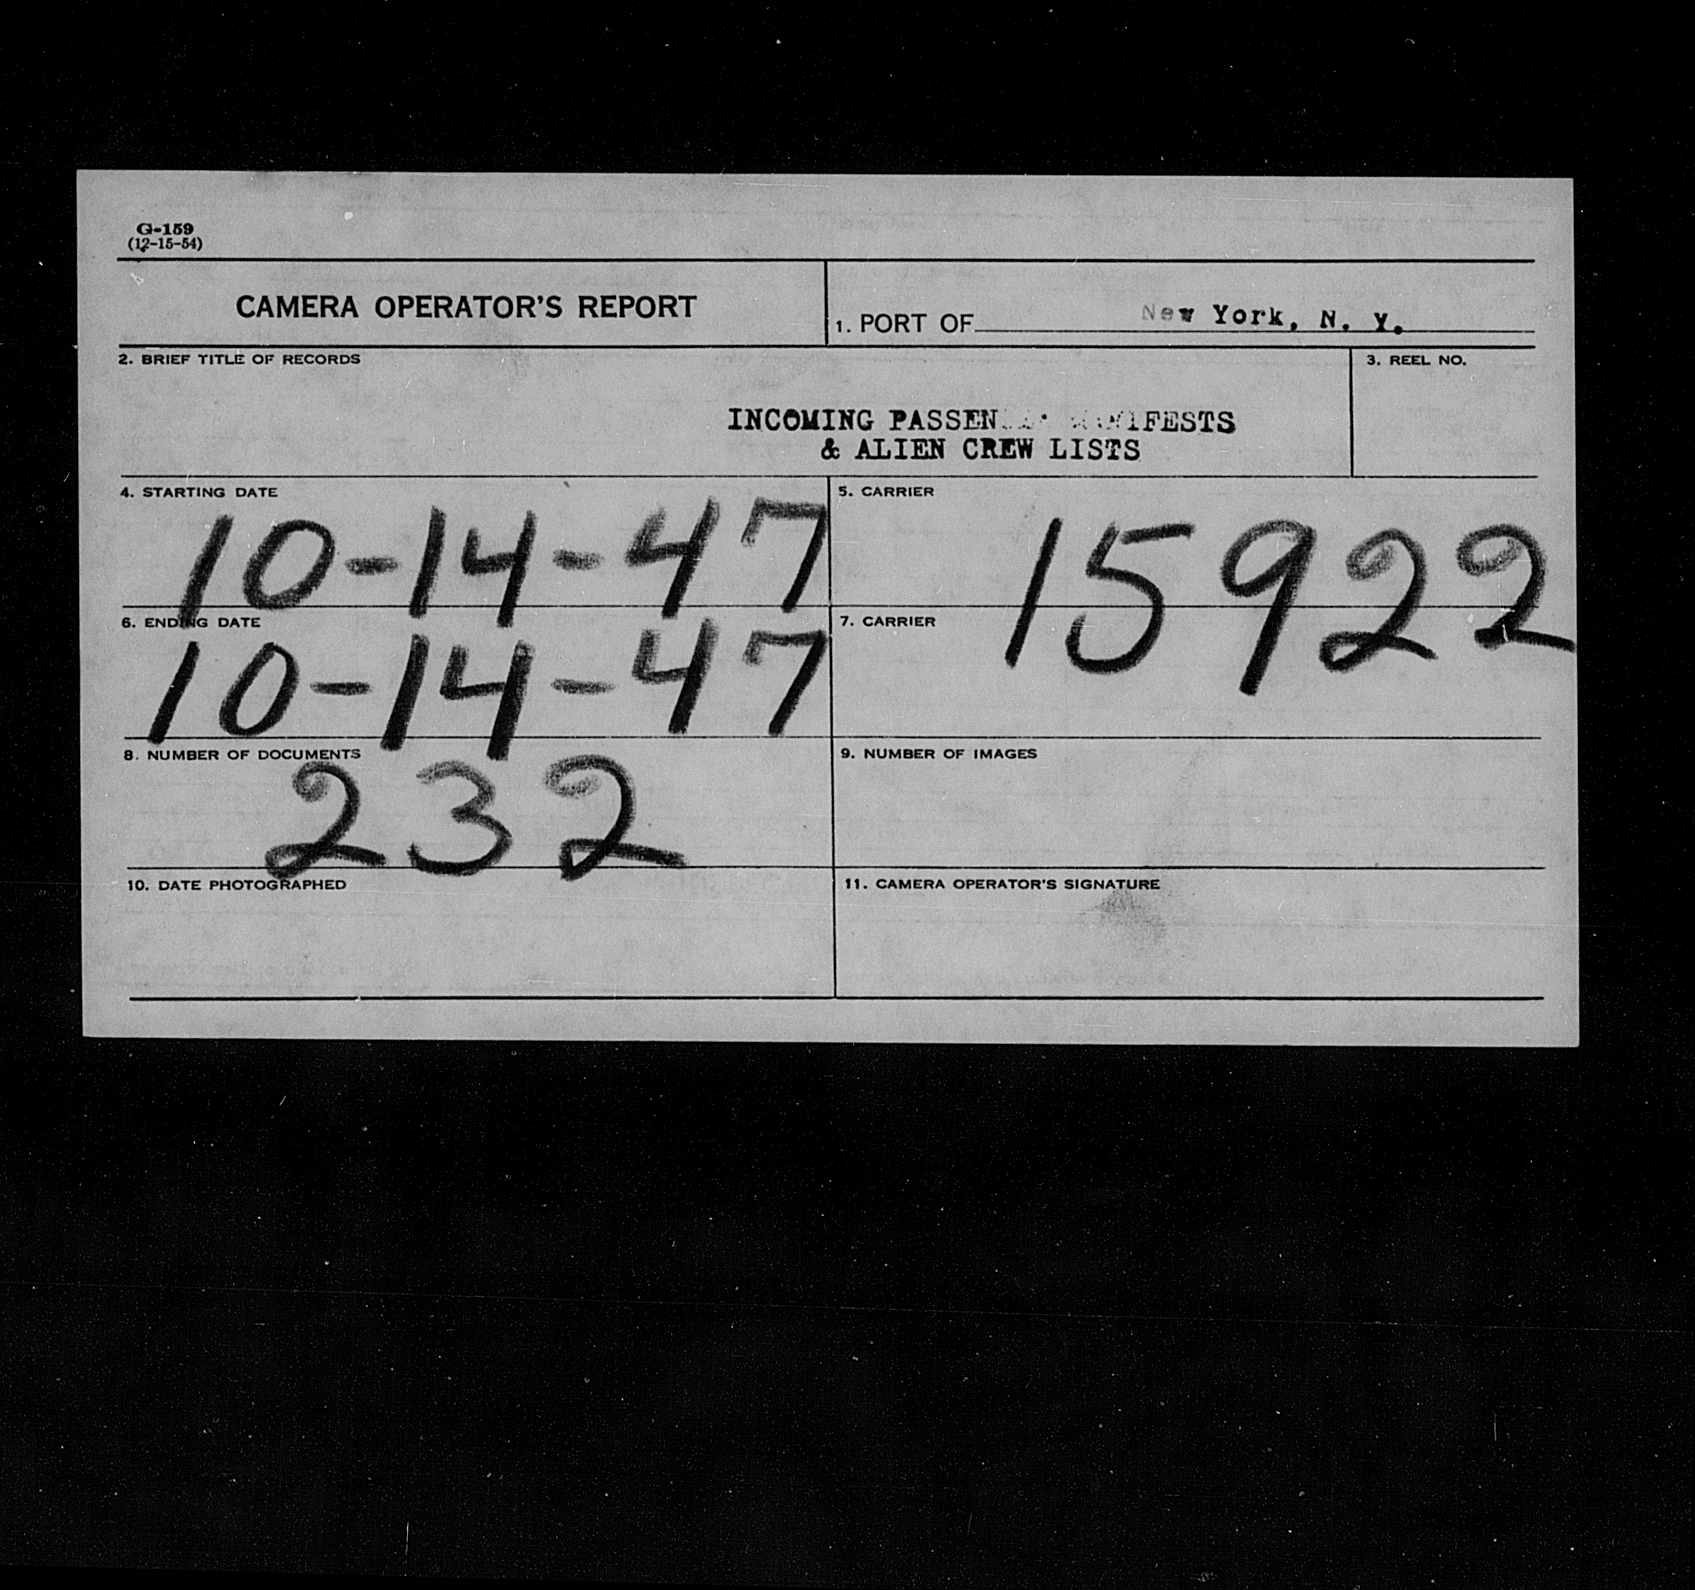 G-159
(12-15-54)
CAMERA OPERATOR'S REPORT
1. PORT OF New York, N. Y.
2. BRIEF TITLE OF RECORDS
3. REEL NO.
INCOMING PASSENGER MANIFESTS
& ALIEN CREW LISTS
4. STARTING DATE
10-14-47
5. CARRIER
15922
6. ENDING DATE
10-14-47
7. CARRIER
8. NUMBER OF DOCUMENTS
232
9. NUMBER OF IMAGES
10. DATE PHOTOGRAPHED
11. CAMERA OPERATOR'S SIGNATURE